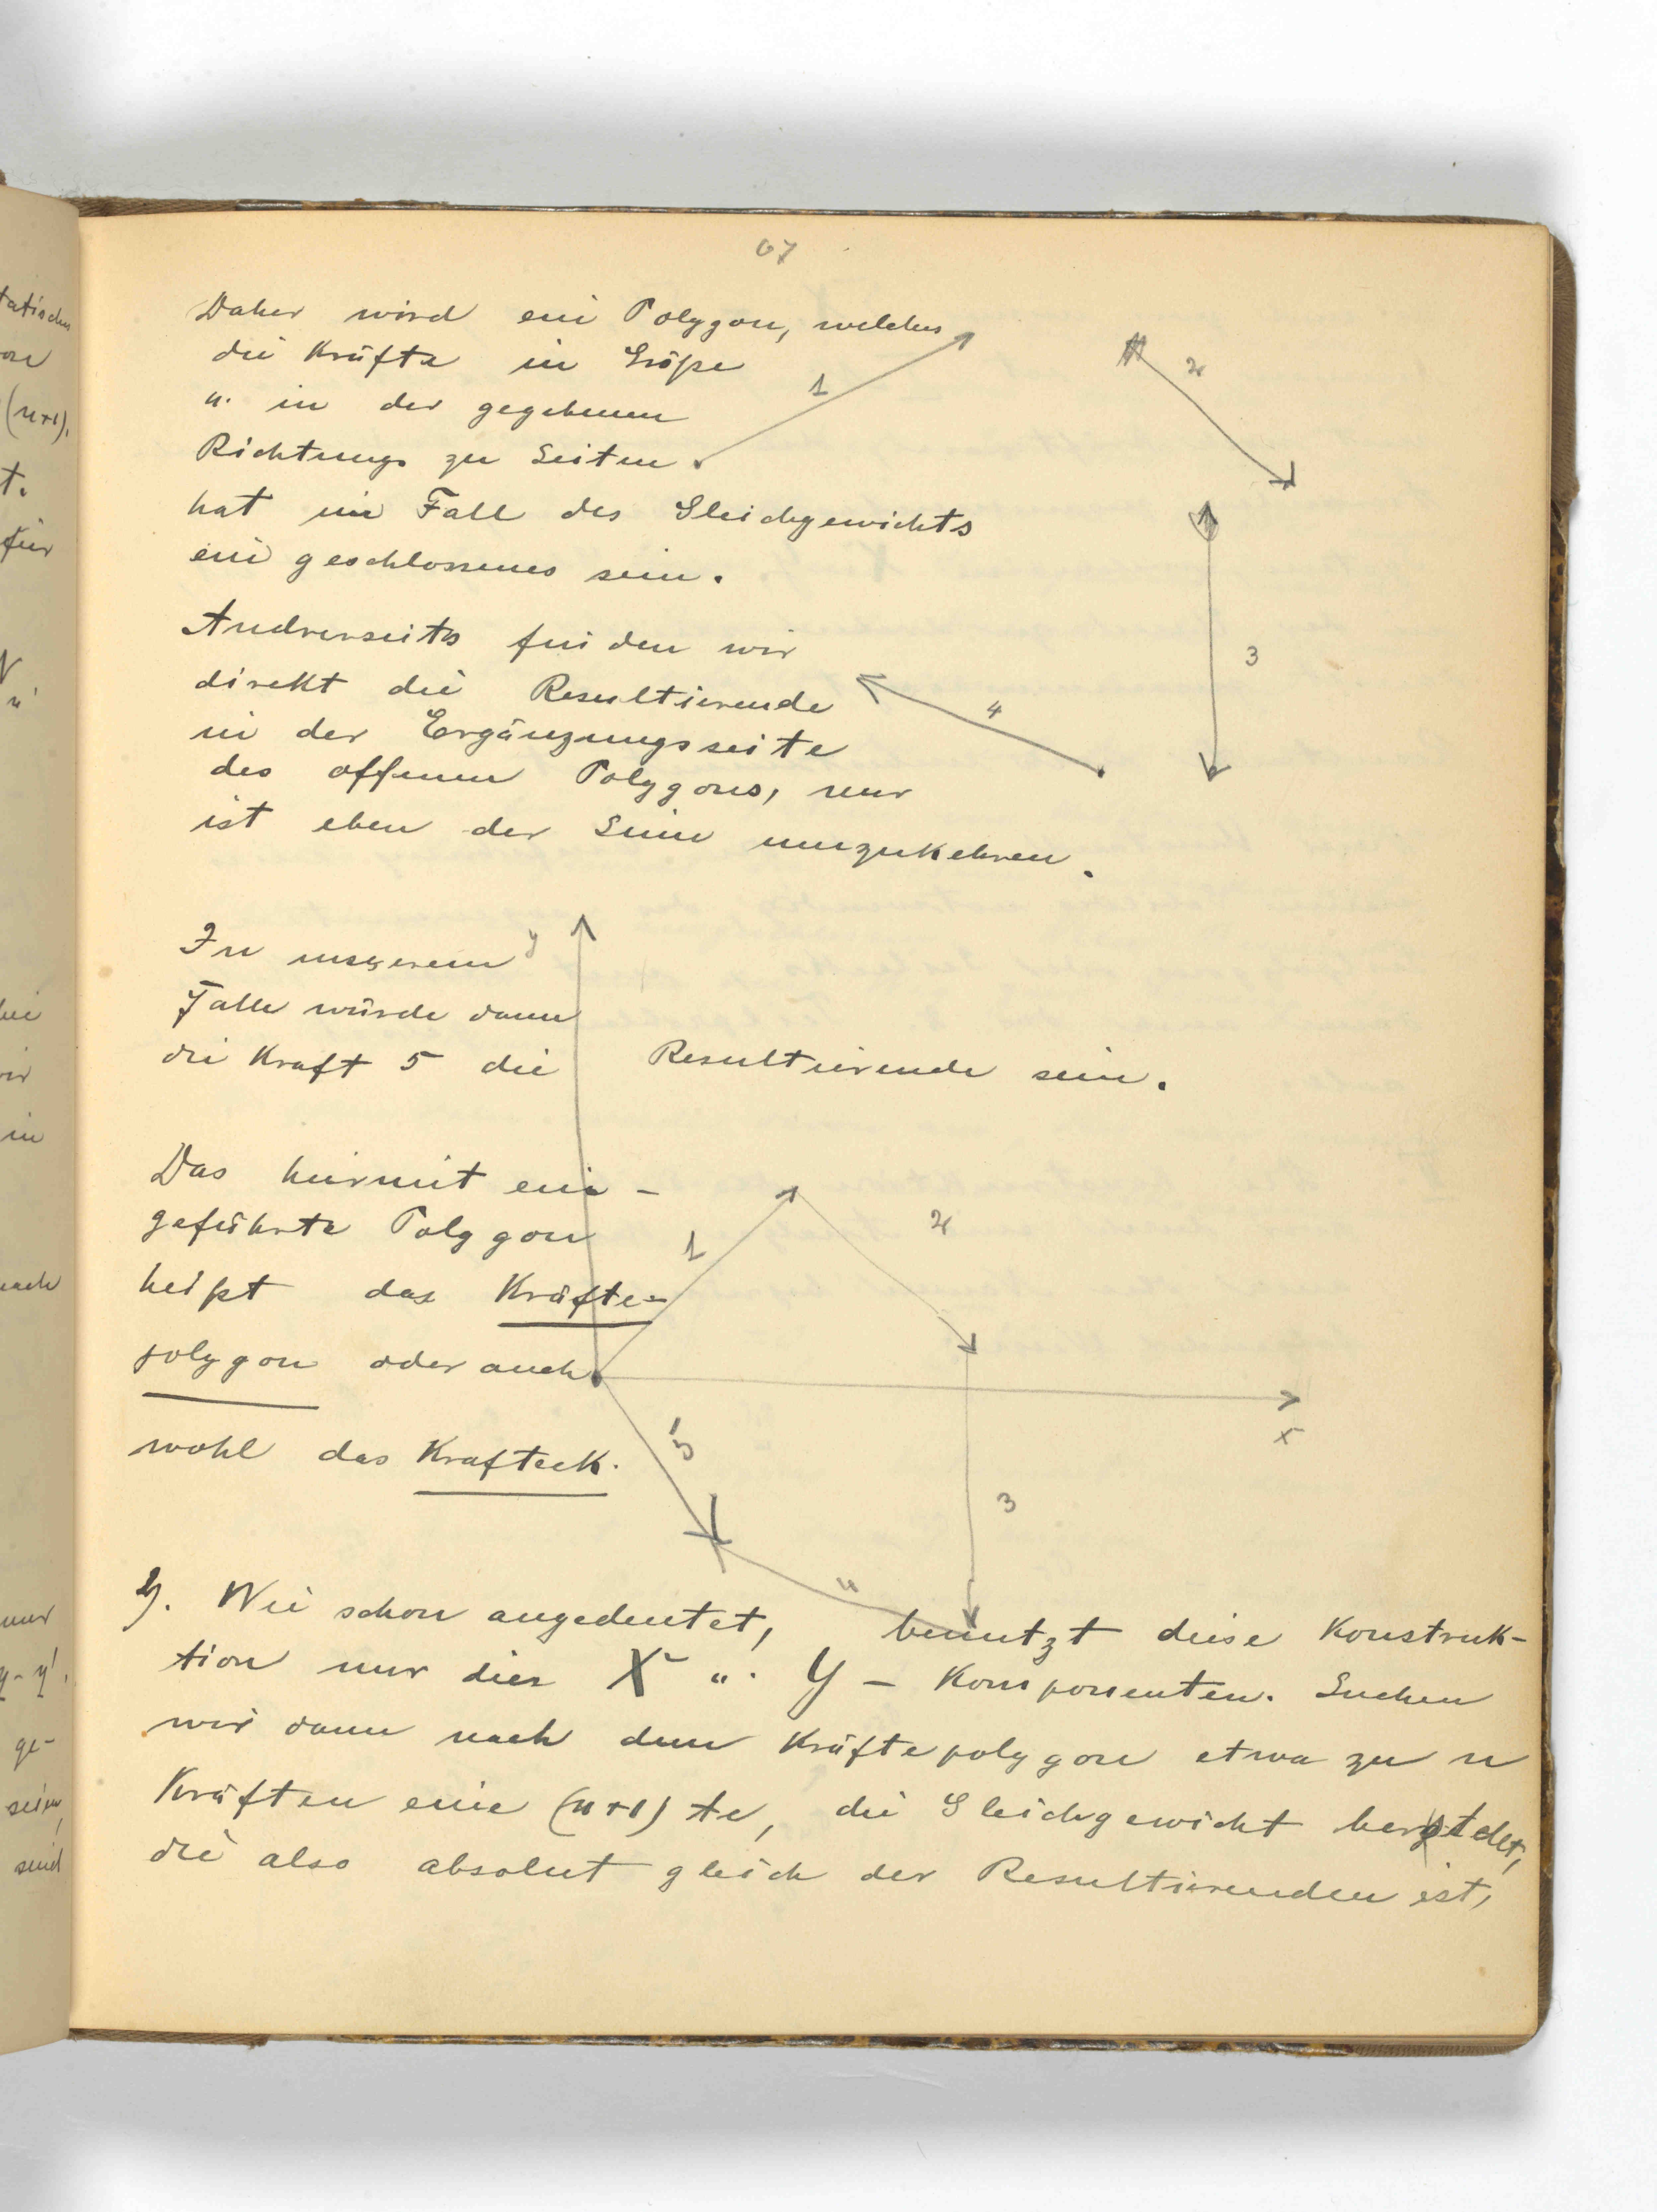 67
Daher wird ein Polygon, welches
die Kräfte in Größe
u. in der gegebenen
Richtung zu Seiten
hat im Fall des Gleichgewichts
ein geschlossenes sein.
Andrerseits finden wir
direkt die Resultierende
in der Ergänzungsseite
des offenen Polygons, nur
ist eben der Sinn umzukehren.
1
2
3
4
In unserem
Falle würde dann
die Kraft 5 die Resultierende sein.
y
Das hiermit ein-
geführte Polygon
heißt das Kräfte-
polygon oder auch
wohl das Krafteck.
1
2
x
5
3
4
2). Wie schon angedeutet, benutzt diese Konstruk-
tion nur die X- u. Y- Komponenten. Suchen
wir dann nach dem Kräftepolygon etwa zu n
Kräften eine (n+1)te, die Gleichgewicht herstellt,
die also absolut gleich der Resultierenden ist,
tatischen
(n+1).
t.
für
in
nach
nur
y-y'.
ge-
sein,
sind